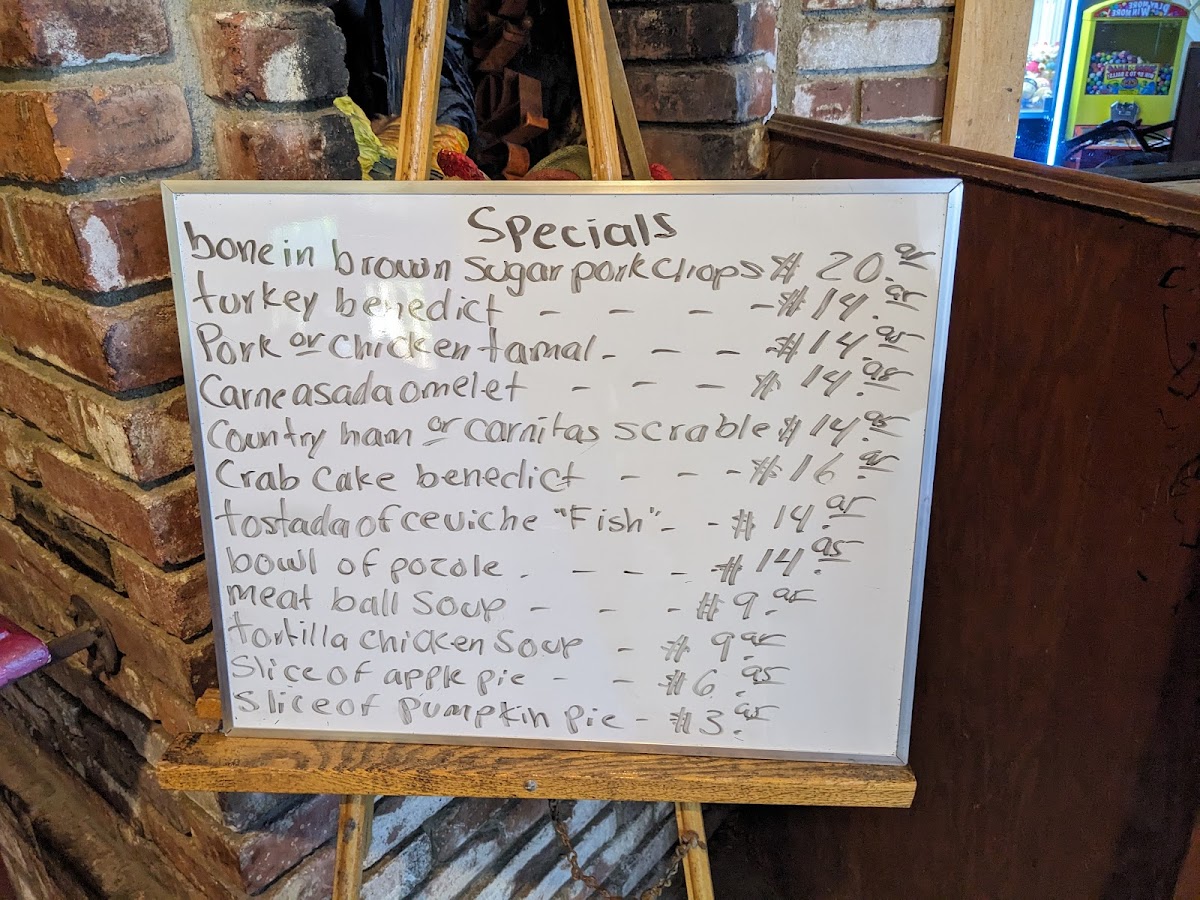 Specials
bone in brown sugar pork chops $ 20.95
turkey benedict - - - - $14.95
Pork or chicken tamal - - - $14.95
Carne asada omelet - - - $ 14.95
Country ham or carnitas scrable $14.95
Crab Cake benedict - - - $16.95
tostada of ceviche "Fish" - - $ 14.95
bowl of pozole . - - - $14.95
meat ball Soup - - - $9.95
tortilla chicken Soup - $ 9.95
Slice of apple pie - - $6.95
Slice of pumpkin pie - $3.95